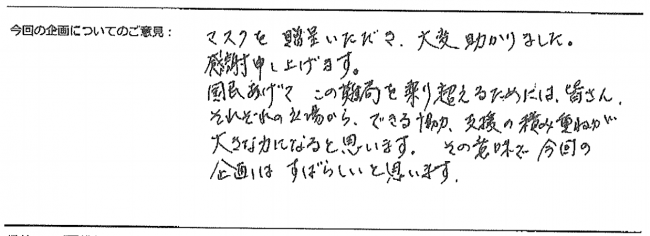 今回の企画についてのご意見：
マスクを 贈呈いただき、大変 助かりました。
感謝申し上げます。
国民あげて この難局を乗り超えるためには、皆さん、
それぞれの立場から、できる協力、支援の積み重ねが
大きな力になると思います。 その意味で 今回の
企画は すばらしいと思います。